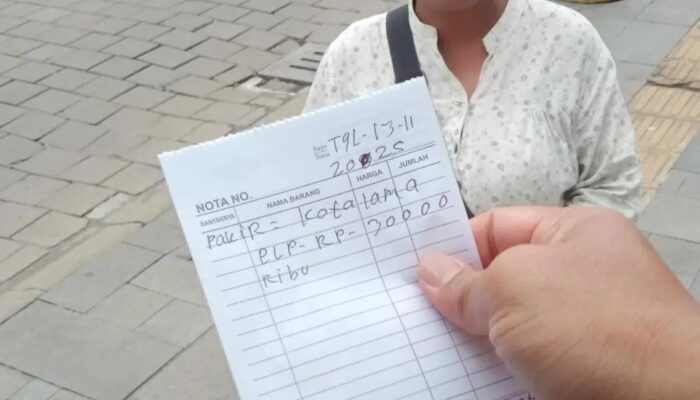 TgL-13-11
Tuan
Toko
2025
NOTA NO.
BANYAKNYA NAMA BARANG HARGA JUMLAH
PakiR= kota lama
ELP- RP- 20000
Ribu